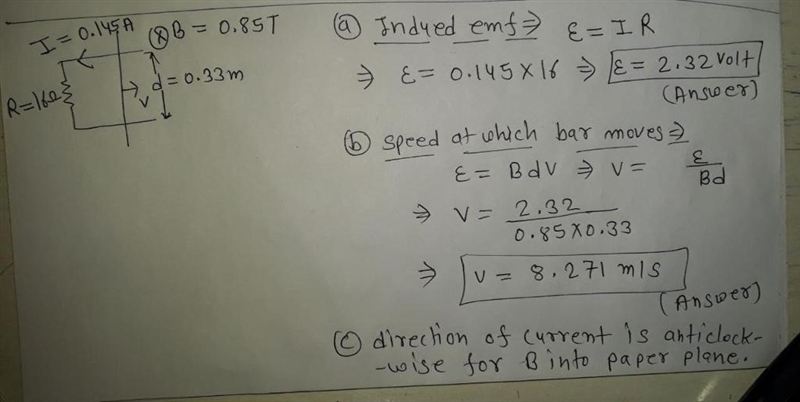 I = 0.145A
⊗B = 0.85T
R=16Ω
V
d = 0.33m
(a) Indued emf ⇒ ε = I R
⇒ ε = 0.145 × 16 ⇒ ε = 2.32 Volt
(Answer)
(b) speed at which bar moves ⇒
ε = B d V ⇒ V = ε / Bd
⇒ V = 2.32 / 0.85×0.33
⇒ V = 8.271 m/s
(Answer)
(c) direction of current is anticlock-
-wise for B into paper plane.